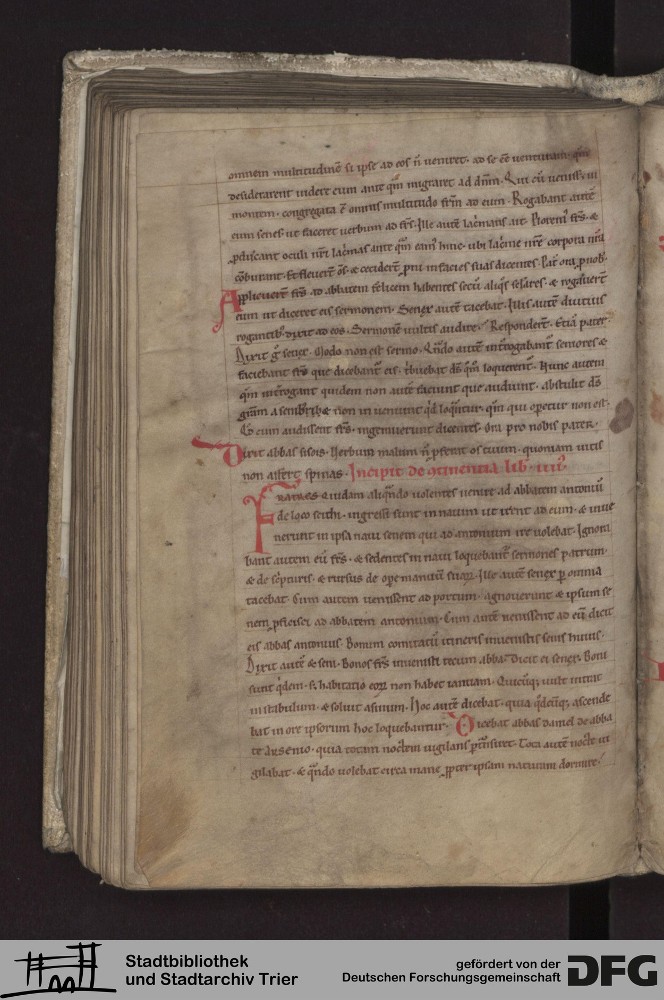 omnem multitudinē si ipse ad eos n̄ veniret. ad se eē venturam. q̄m
desiderarent videre eum ante q̄m migraret ad dn̄m. Qui cū venisset in
montem. congregata ē omnis multitudo fr̄m ad eum. Rogabant autē
eum senes ut faceret verbum ad frs̄. Ille autē lac̄mans ait. Ploremꝰ frs̄. &
ꝓducant oculi nr̄i lac̄mas ante q̄m eamꝰ hinc. ubi lac̄me nr̄e corpora nr̄a
cōburant. Et fleverт̄ oms̄. & cecidert̄ ꝓni in facies suas dicentes. Pat̄ ora ꝓ nob̄.
Applicuert̄ frs̄ ad abbatem felicem habentes secū aliq̄s sc̄lares. & rogavert̄
eum ut diceret eis sermonem. Senex autē tacebat. Illis autē diutius
rogantibꝰ. dixit ad eos. Sermonē vultis audire. Respondert̄. Etiā pater.
Dixit g̊ senex. Modo non est sermo. Qn̄do autē int̄rogabant̄ seniores &
faciebant frs̄ que dicebant̄ eis. t̄buebat ds̄ q̄m loquerent̄. Nunc autem
q̄m int̄rogant quidem non autē faciunt que audiunt. abstulit ds̄
grām a senibꝰ & non inveniunt q̄d loqn̄tur. q̄m qui operetur non est.
Et cum audissent frs̄. ingemuerunt dicentes. Ora pro nobis pater.
Dixit abbas sisois. Herbum malum n̄ ꝓferat os tuum. quoniam vitis
non affert̄ spinas. Incipit de ꝯtinentia lib̄. iiii.
Fratres Quidam aliqn̄do volentes venire ad abbatem antoniū
de loco scithi. ingressi sunt in navim ut irent ad eum. & inve
nerunt in ipsa navi senem qui ad antonium ire volebat. Ignora
bant autem eū frs̄. & sedentes in navi loquebant̄ sermones patrum.
& de sc̄pturis. & rursus de ope manuum suaꝝ. Ille autē senex ꝑ omnia
tacebat. Cum autem venissent ad portum. agnoverunt & ipsum se
nem ꝓficisci ad abbatem antonium. Cum autē venissent ad eū dicit
eis abbas antonius. Bonum comitatū itineris invenistis senis huius.
Dixit autē & seni. Bonos frs̄ invenisti tecum abba. Dicit ei senex. Boni
sunt q̇dem. s̄ habitatio eoꝝ non habet ianuam. Quicūq; vult intrat
in stabulum. & solvit asinum. Hoc autē dicebat. quia q̇dcūq; ascende
bat in ore ipsorum hoc loquebantur. Dicebat abbas daniel de abba
te Arsenio. quia totam noctem vigilans ꝑt̄nsiret. Tota autē nocte vi
gilabat. & qn̄do volebat circa mane ꝓpter ipsam naturam dormire.
Stadtbibliothek
und Stadtarchiv Trier
gefördert von der
Deutschen Forschungsgemeinschaft
DFG